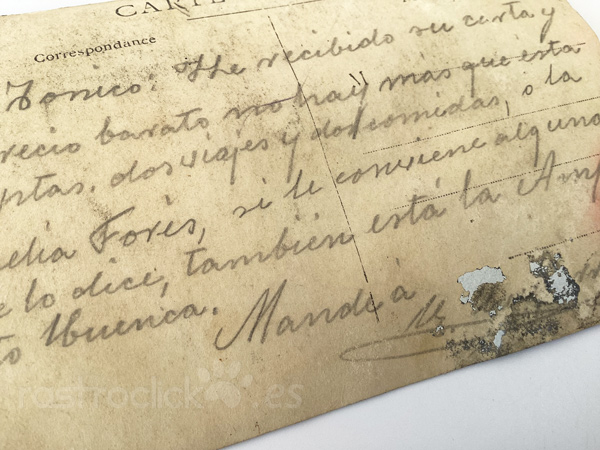 CARTE
Correspondance
Tonico: He recibido su carta y
recio barato no hay más que esta
ptas. dos viajes y dos comidas, o la
elia Forés, si le conviene alguna
e lo dice, también está la Amp
to Cuenca. Mande á
rastroclick.es